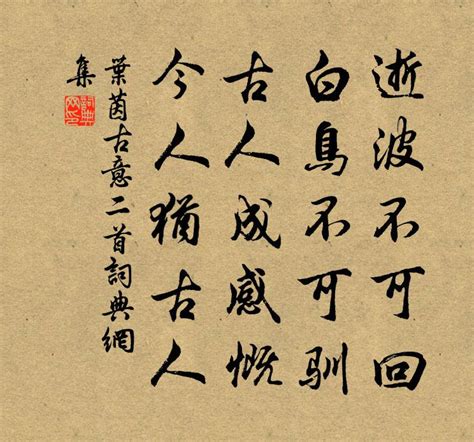 逝波不可回
白鳥不可驯
古人成感慨
今人猶古人
葉茵古意二首詞典網
集
詞典
网印